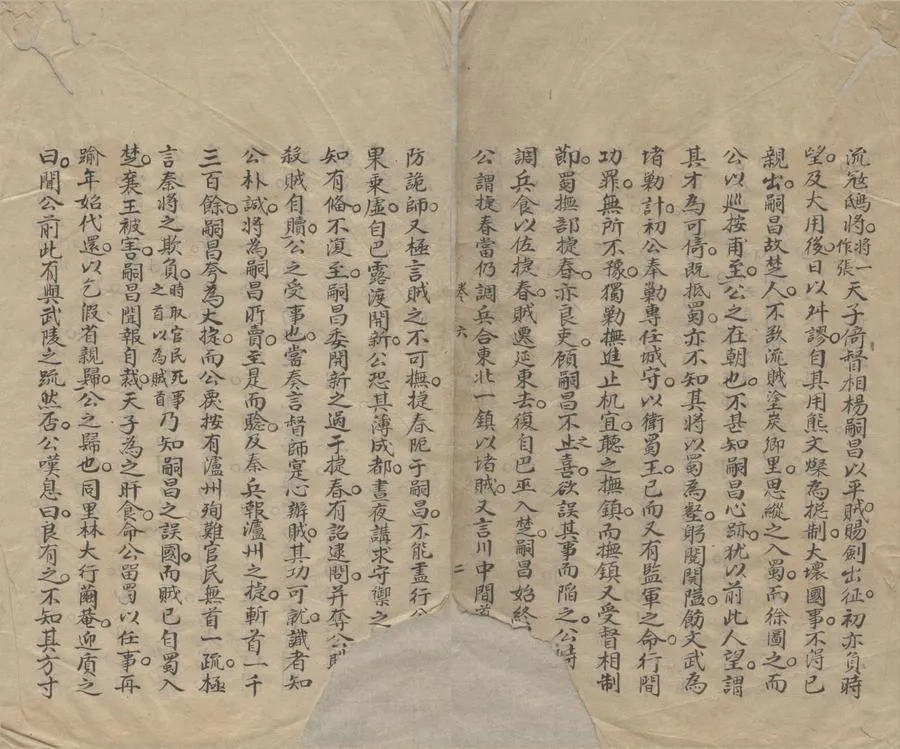 流寇鴟將將一作張天子倚督相楊嗣昌以平賊賜劍出征初亦負時
望及大用後日以舛謬自其用熊文燦為揔制大壞國事不得已
親出嗣昌故楚人不欲流賊塗炭鄉里思縱之入蜀而徐圖之而
公以巡按甫至公之在朝也不甚知嗣昌心跡犹以前此人望謂
其才為可倚既抵蜀亦不知其將以蜀為壑躬閱關隘飭文武為
堵勦計初公奉勦專任城守以衛蜀王已而又有監軍之命行間
功罪無所不豫獨勦撫進止机宜聽之撫鎮而撫鎮又受督相制
節蜀撫邵捷春亦良吏顧嗣昌不止之喜欲誤其事而陷之公
調兵食以佐捷春賊遷延東去復自巴巫入楚嗣昌始終
公謂捷春當仍調兵合東北一鎮以堵賊又言川中閣
卷六 二
防詭師又極言賊之不可撫捷春阨于嗣昌不能盡行
果乘虛自巴露渡開新公恐其薄成都晝夜講求守禦之
知有俻不復至嗣昌委開新之過于捷春有詔逮問并奪公
殺賊自贖公之受事也當奏言督師寔心辦賊其功可就識者知
公朴誠將為嗣昌所賣至是而驗及秦兵報瀘州之捷斬首一千
三百餘嗣昌夸為大捷而公覆按有瀘州殉難官民無首一疏極
言秦將之欺負時取官民死事之首以為賊首乃知嗣昌之誤國而賊已自蜀入
楚襄王被害嗣昌聞報自裁天子為之旰食命公留蜀以任事再
踰年始代還以乞假省親歸公之歸也同里林大行爾菴迎質之
曰聞公前此有與武陵之疏然否公嘆息曰良有之不知其方寸